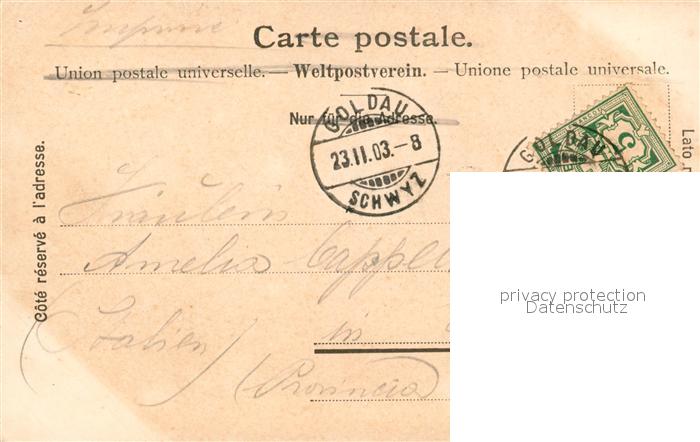 Imprimé
Carte postale.
Union postale universelle. — Weltpostverein. — Unione postale universale.
Nur für die Adresse.
GOLDAU
23.II.03.-8
SCHWYZ
GOLDAU
5
Côté réservé à l'adresse.
Lato
Fräulein
Amelia
in
(Italien)
(Provincia
privacy protection
Datenschutz